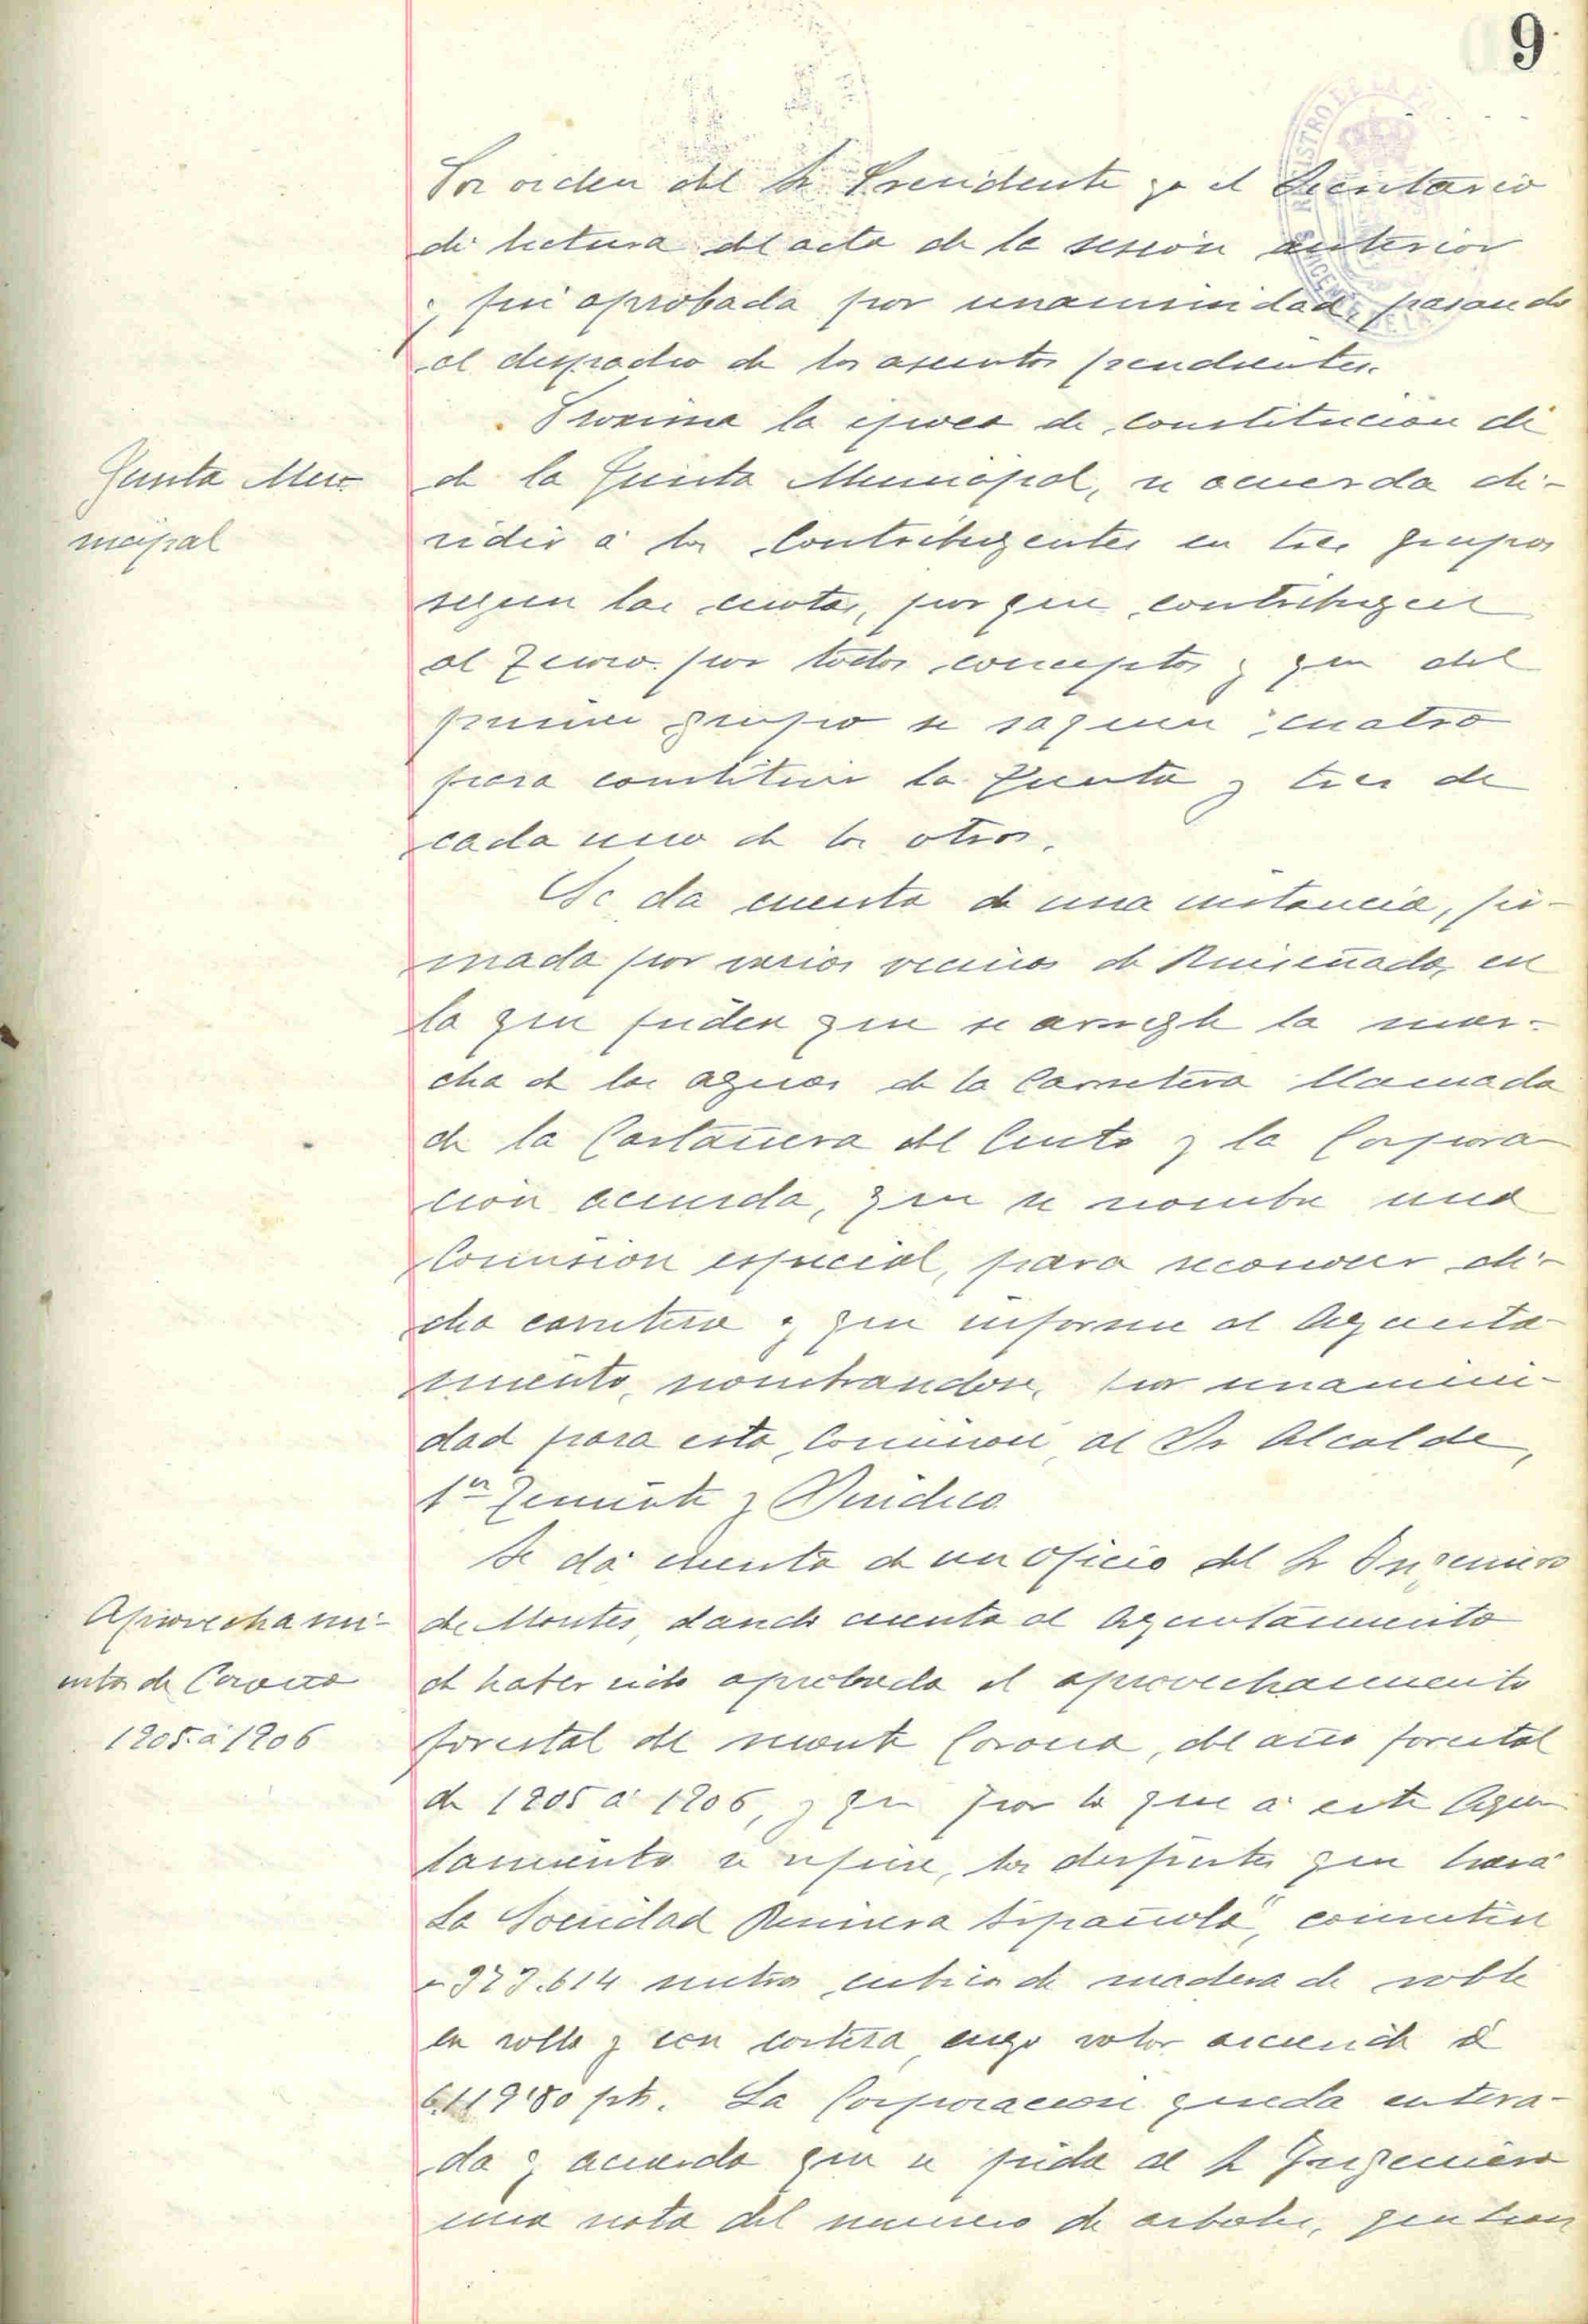 9
Por orden del Sr Presidente yo el Secretario
di lectura del acta de la sesión anterior
y fué aprobada por unanimidad, pasando
al despacho de los asuntos pendientes.
Proxima la epoca de constitucion de
Junta Mu-
nicipal
de la Junta Municipal, se acuerda di-
vidir á los Contribuyentes en tres grupos
segun las cuotas, por que contribuyen
al Tesoro por todos conceptos y que del
primer grupo se saquen cuatro
para constituir la Junta y tres de
cada uno de los otros.
Se da cuenta de una instancia, fir-
mada por varios vecinos de Ruiseñada, en
la que piden que se arregle la mar-
cha de las aguas de la Carretera llamada
de la Castañera del Cinto y la Corpora-
ción acuerda, que se nombre una
Comision especial, para reconocer di-
cha carretera y que informe al Ayunta-
miento, nombrandose, por unanimi-
dad para esta Comision, al Sr Alcalde,
1er Teniente y Sindico
Se dá cuenta de un oficio del Sr Ingeniero
Aprovechami-
entos de Corona
1905 á 1906
de Montes, dando cuenta al Ayuntamiento
de haber sido aprobado el aprovechamiento
forestal del monte Corona, del año forestal
de 1905 á 1906, y que por lo que á este Ayun-
tamiento se refiere, los desfrutes que hará
La Sociedad Resinera Española", consisten
en 373.614 metros cubicos de madera de roble
en rollo y con corteza, cuyo valor asciende á
6.119'80 pts. La Corporacion queda entera-
da y acuerda que se pida al Sr Ingeniero
una nota del numero de arboles, que han